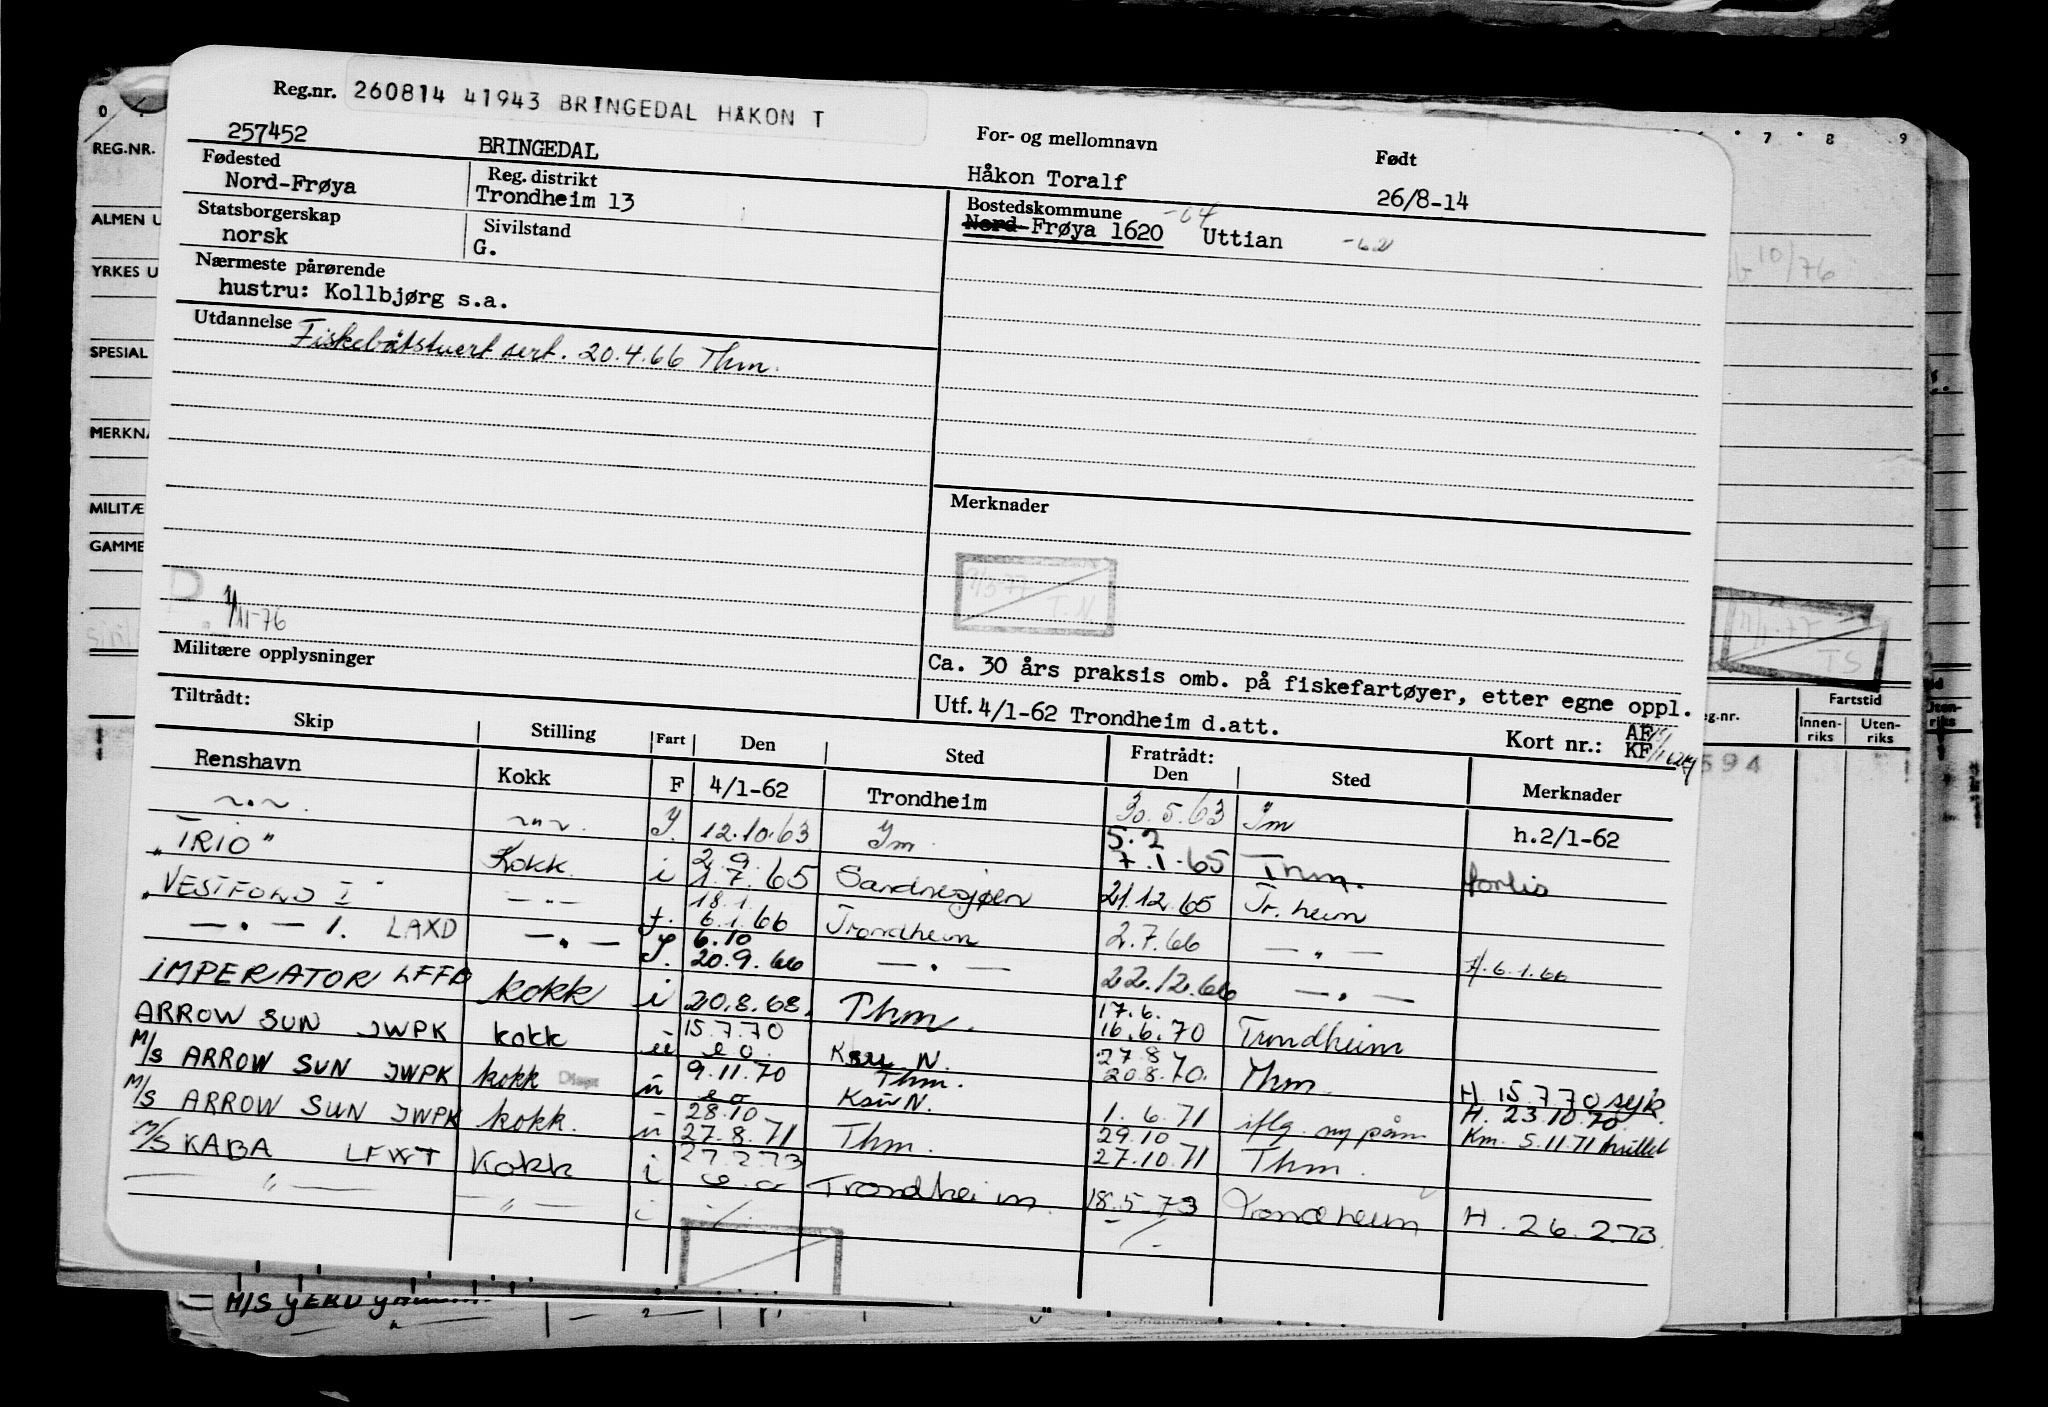 Reg.nr. 260814 41943 BRINGEDAL HÅKON T
257452 BRINGEDAL
For- og mellomnavn
Håkon Toralf
Født
26/8-14
Fødested
Nord-Frøya
Reg. distrikt
Trondheim 13
Bostedskommune
Nord-Frøya 1620 -64 Uttian -62
Statsborgerskap
norsk
Sivilstand
G.
Nærmeste pårørende
hustru: Kollbjørg s.a.
Utdannelse
Fiskebåtstuert sert. 20.4.66 Thm.
Merknader
Militære opplysninger
Ca. 30 års praksis omb. på fiskefartøyer, etter egne oppl.
Utf. 4/1-62 Trondheim d.att.
Kort nr.: AF
KF
Tiltrådt:
Skip Stilling Fart Den Sted Fratrådt: Den Sted Merknader
Renshavn Kokk F 4/1-62 Trondheim 30.5.63 h.2/1-62
12.10.63 5.2
"TRIO" Kokk i 2.9. 1.7.65 Sandnesjøen 7.1.65 Thm. forlis
"VESTFJORD I" 18.1. 6.1.66 Trondheim 21.12.65 Tr.heim
— " — 1. LAXD — " — 6.10 20.9.66 — " — 2.7.66 — " — H. 6.1.66
IMPERATOR LFFB kokk i 20.8.68. Thm. 22.12.66 — " —
ARROW SUN JWPK kokk 15.7.70 17.6. 16.6.70 Trondheim
M/S ARROW SUN JWPK kokk 9.11.70 Thm. 27.8 20.8.70. Thm. H. 15.7.70 syk
M/S ARROW SUN JWPK kokk. 28.10 27.8.71 Thm. 1.6.71 iflg. ny påm H. 23.10.70
M/S KABA LFWT Kokk i 27.2.73 Trondheim 29.10 27.10.71 Thm. Km. 5.11.71
— " — — " — i 18.5-73 Trondheim H. 26.2.73.
REG.NR.
ALMEN U
YRKES U
SPESIAL
MERKNA
MILITÆ
GAMME
7 8 9
10/76
T.N.
1/11-76
TS
g.nr.
Fartstid
Innen-
riks
Uten-
riks
594
M/S